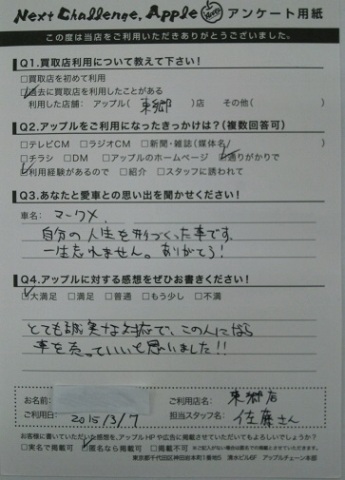 Next Challenge, Apple アンケート用紙
この度は当店をご利用いただきありがとうございました。
Q1.買取店利用について教えて下さい!
□買取店を初めて利用
□過去に買取店を利用したことがある
利用した店舗: アップル( 東郷 )店 その他( )
Q2.アップルをご利用になったきっかけは?(複数回答可)
□テレビCM □ラジオCM □新聞・雑誌(媒体名 )
□チラシ □DM □アップルのホームページ □通りがかりで
□利用経験があるので □紹介 □スタッフに誘われて
Q3.あなたと愛車との思い出を聞かせください!
車名: マークX.
自分の人生を形づくった車です。
一生忘れません。ありがとう!
Q4.アップルに対する感想をぜひお書きください!
□大満足 □満足 □普通 □もう少し □不満
とても誠実な対応で、この人になら
車を売っていいと思いました!!
お名前:
ご利用店名: 東郷店
ご利用日: 2015/3/7
担当スタッフ名: 佐藤さん
お客様に書いていただいた感想を、アップルHPや広告に掲載させていただいてもよろしいでしょうか?
□実名で掲載可 □匿名なら掲載可 □掲載不可
東京都千代田区神田岩本町1番地5 清水ビル6F アップルチェーン本部